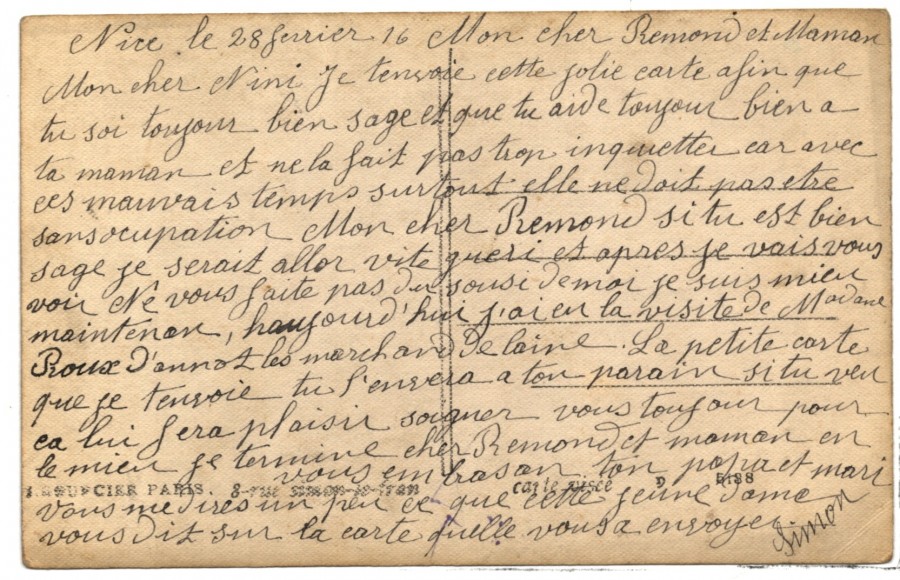 Nice le 28 fevrier 16 Mon cher Remond et Maman
Mon cher Nini Je tenvoie cette jolie carte afin que
tu soi toujour bien sage et que tu aide toujour bien a
ta maman et ne la fait pas trop inquietter car avec
ces mauvais temps surtout elle ne doit pas etre
sans ocupation Mon cher Remond si tu est bien
sage je serait allor vite gueri et apres je vais vous
voir Ne vous faite pas du sousi de moi je suis mieu
maintenan, haujourd'hui j'ai eu la visite de Madame
Roux d'annot les marchand de laine. La petite carte
que je tenvoie tu l'envera a ton parain si tu veu
ca lui fera plaisir soigner vous toujour pour
le mieu je termine cher Remond et maman en
vous embrasan ton papa et mari
PARIS. 8 rue carte 5188
vous me dires un peu ce que cette jeune dame
vous dit sur la carte quelle vous a envoyer
Simon